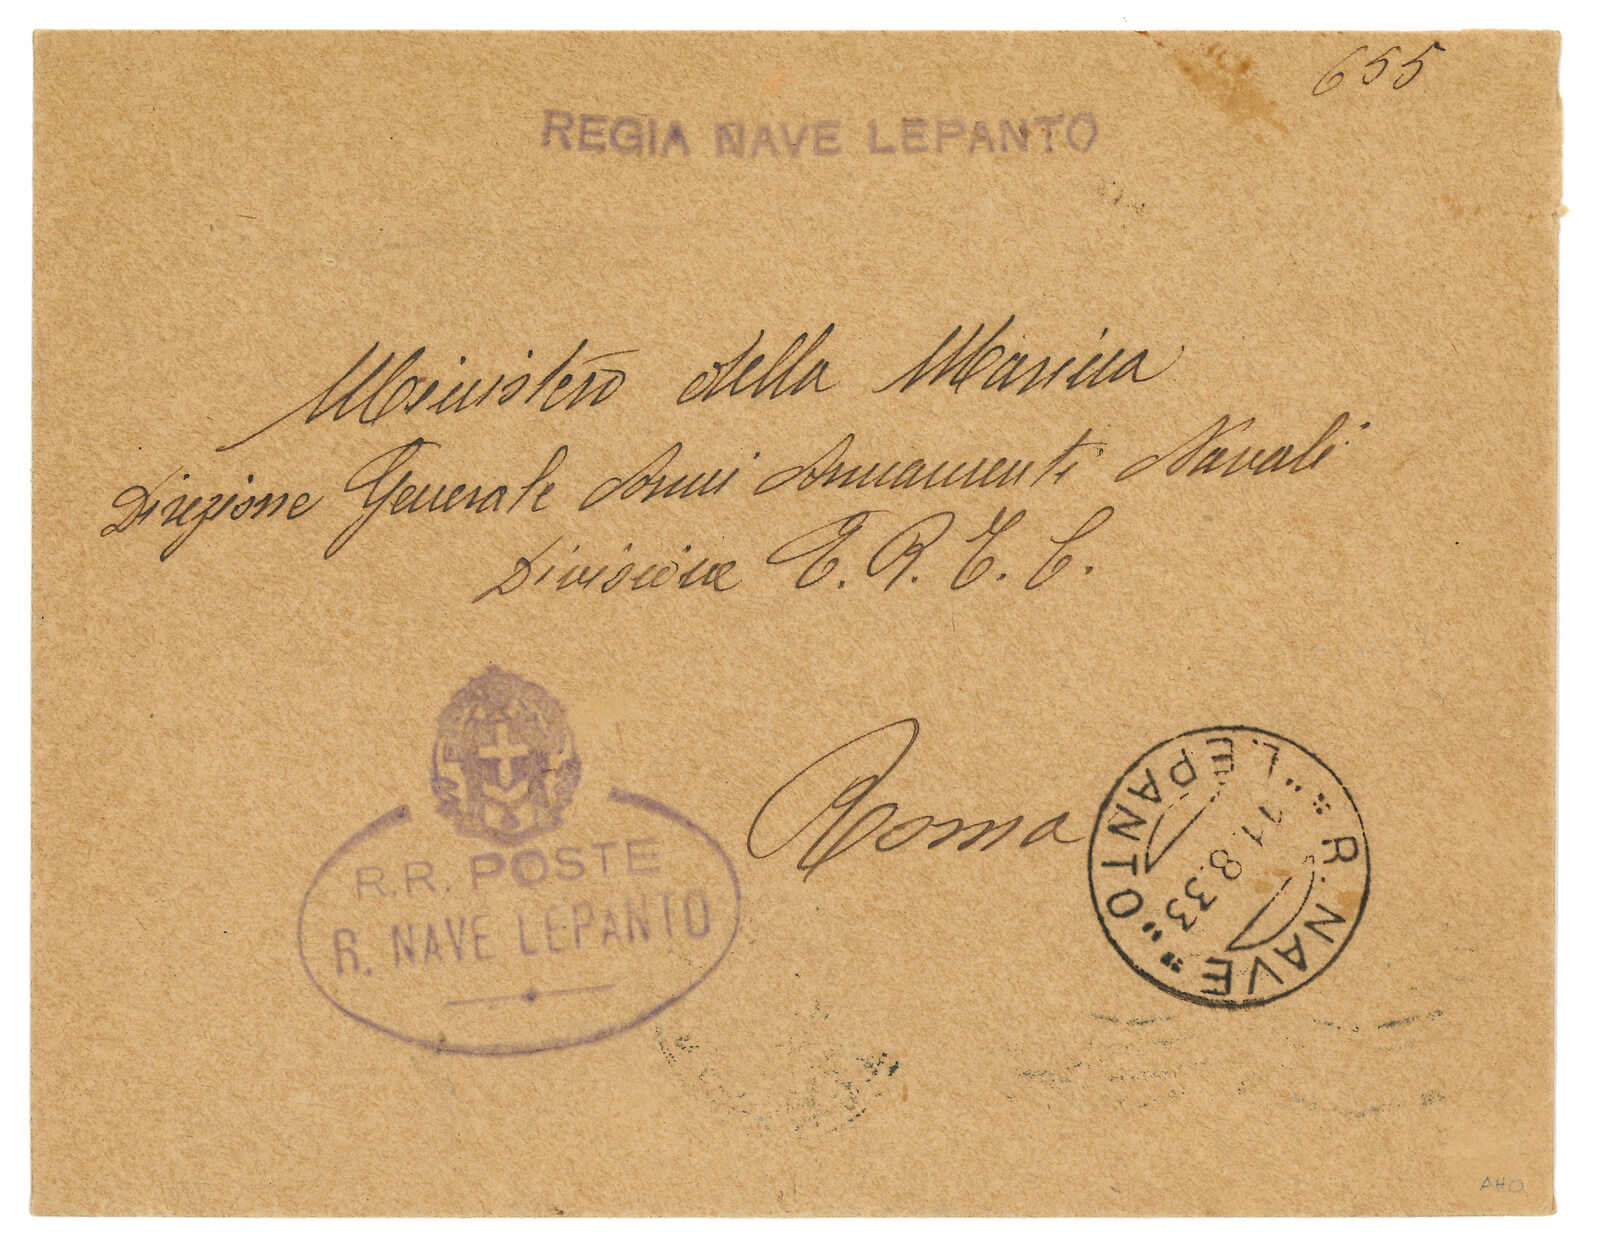 655
REGIA NAVE LEPANTO
Ministero della Marina
Direzione Generale Armi Armamenti Navali
Divisione E. R. T. C.
Roma
R.R. POSTE
R. NAVE LEPANTO
R. NAVE "LEPANTO"
11.8.33